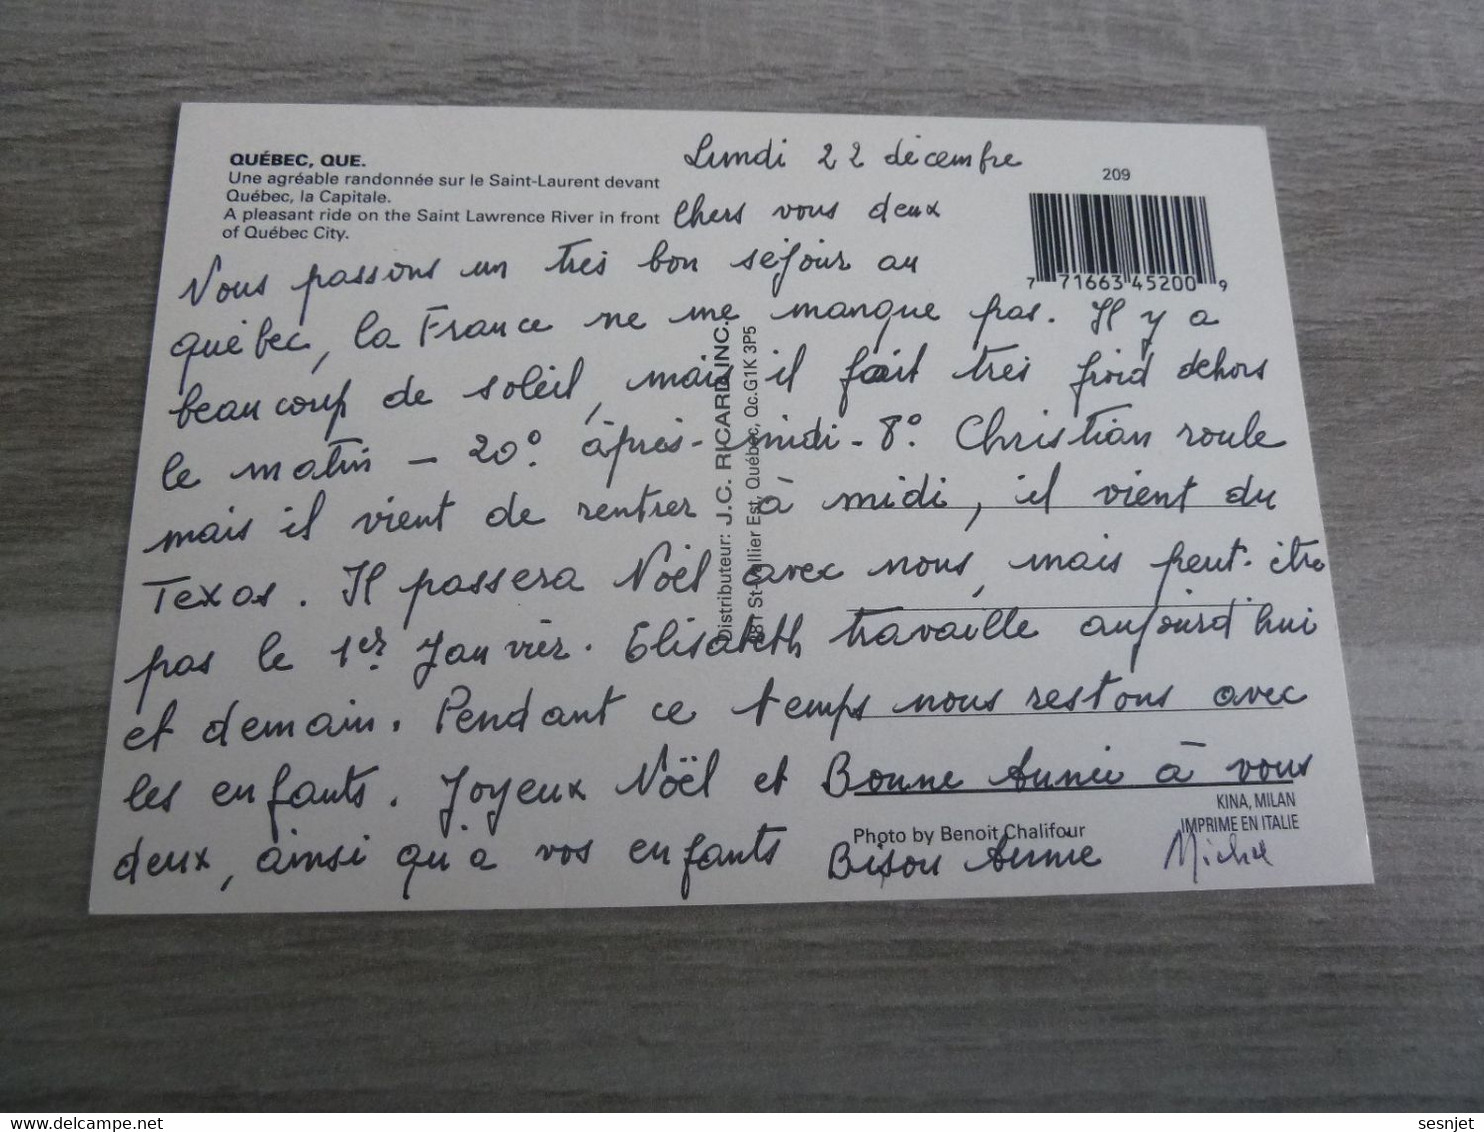 QUÉBEC, QUE.
Une agréable randonnée sur le Saint-Laurent devant
Québec, la Capitale.
A pleasant ride on the Saint Lawrence River in front
of Québec City.
209
7 71663 45200 9
Lundi 22 décembre
Chers vous deux
Nous passons un très bon séjour au
québec, la France ne me manque pas. Il y a
beaucoup de soleil, mais il fait très froid dehors
le matin - 20°. àprès-midi - 8°. Christian roule
mais il vient de rentrer à midi, il vient du
Texas. Il passera Noël avec nous, mais peut-être
pas le 1er Janvier. Elisabeth travaille aujourd'hui
et demain. Pendant ce temps nous restons avec
les enfants. Joyeux Noël et Bonne Année à vous
deux, ainsi qu'à vos enfants Bisou Annie Michel
Distributeur: J.C. RICARD INC.
St-Vallier Est, Québec, Qc.G1K 3P5
Photo by Benoit Chalifour
KINA, MILAN
IMPRIME EN ITALIE
sesnjet